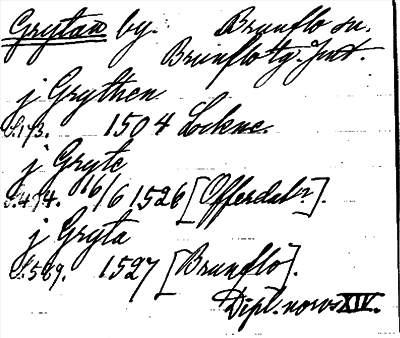 Grytan by. Brunflo sn.
Brunflo tg. Jmt.
j Grythen
S. 173. 1504 Lockne.
j Gryte
S. 474. 16/6 1526 [Offerdal?].
j Gryta
S. 589. 1527 [Brunflo].
Dipl. norv. XIV.